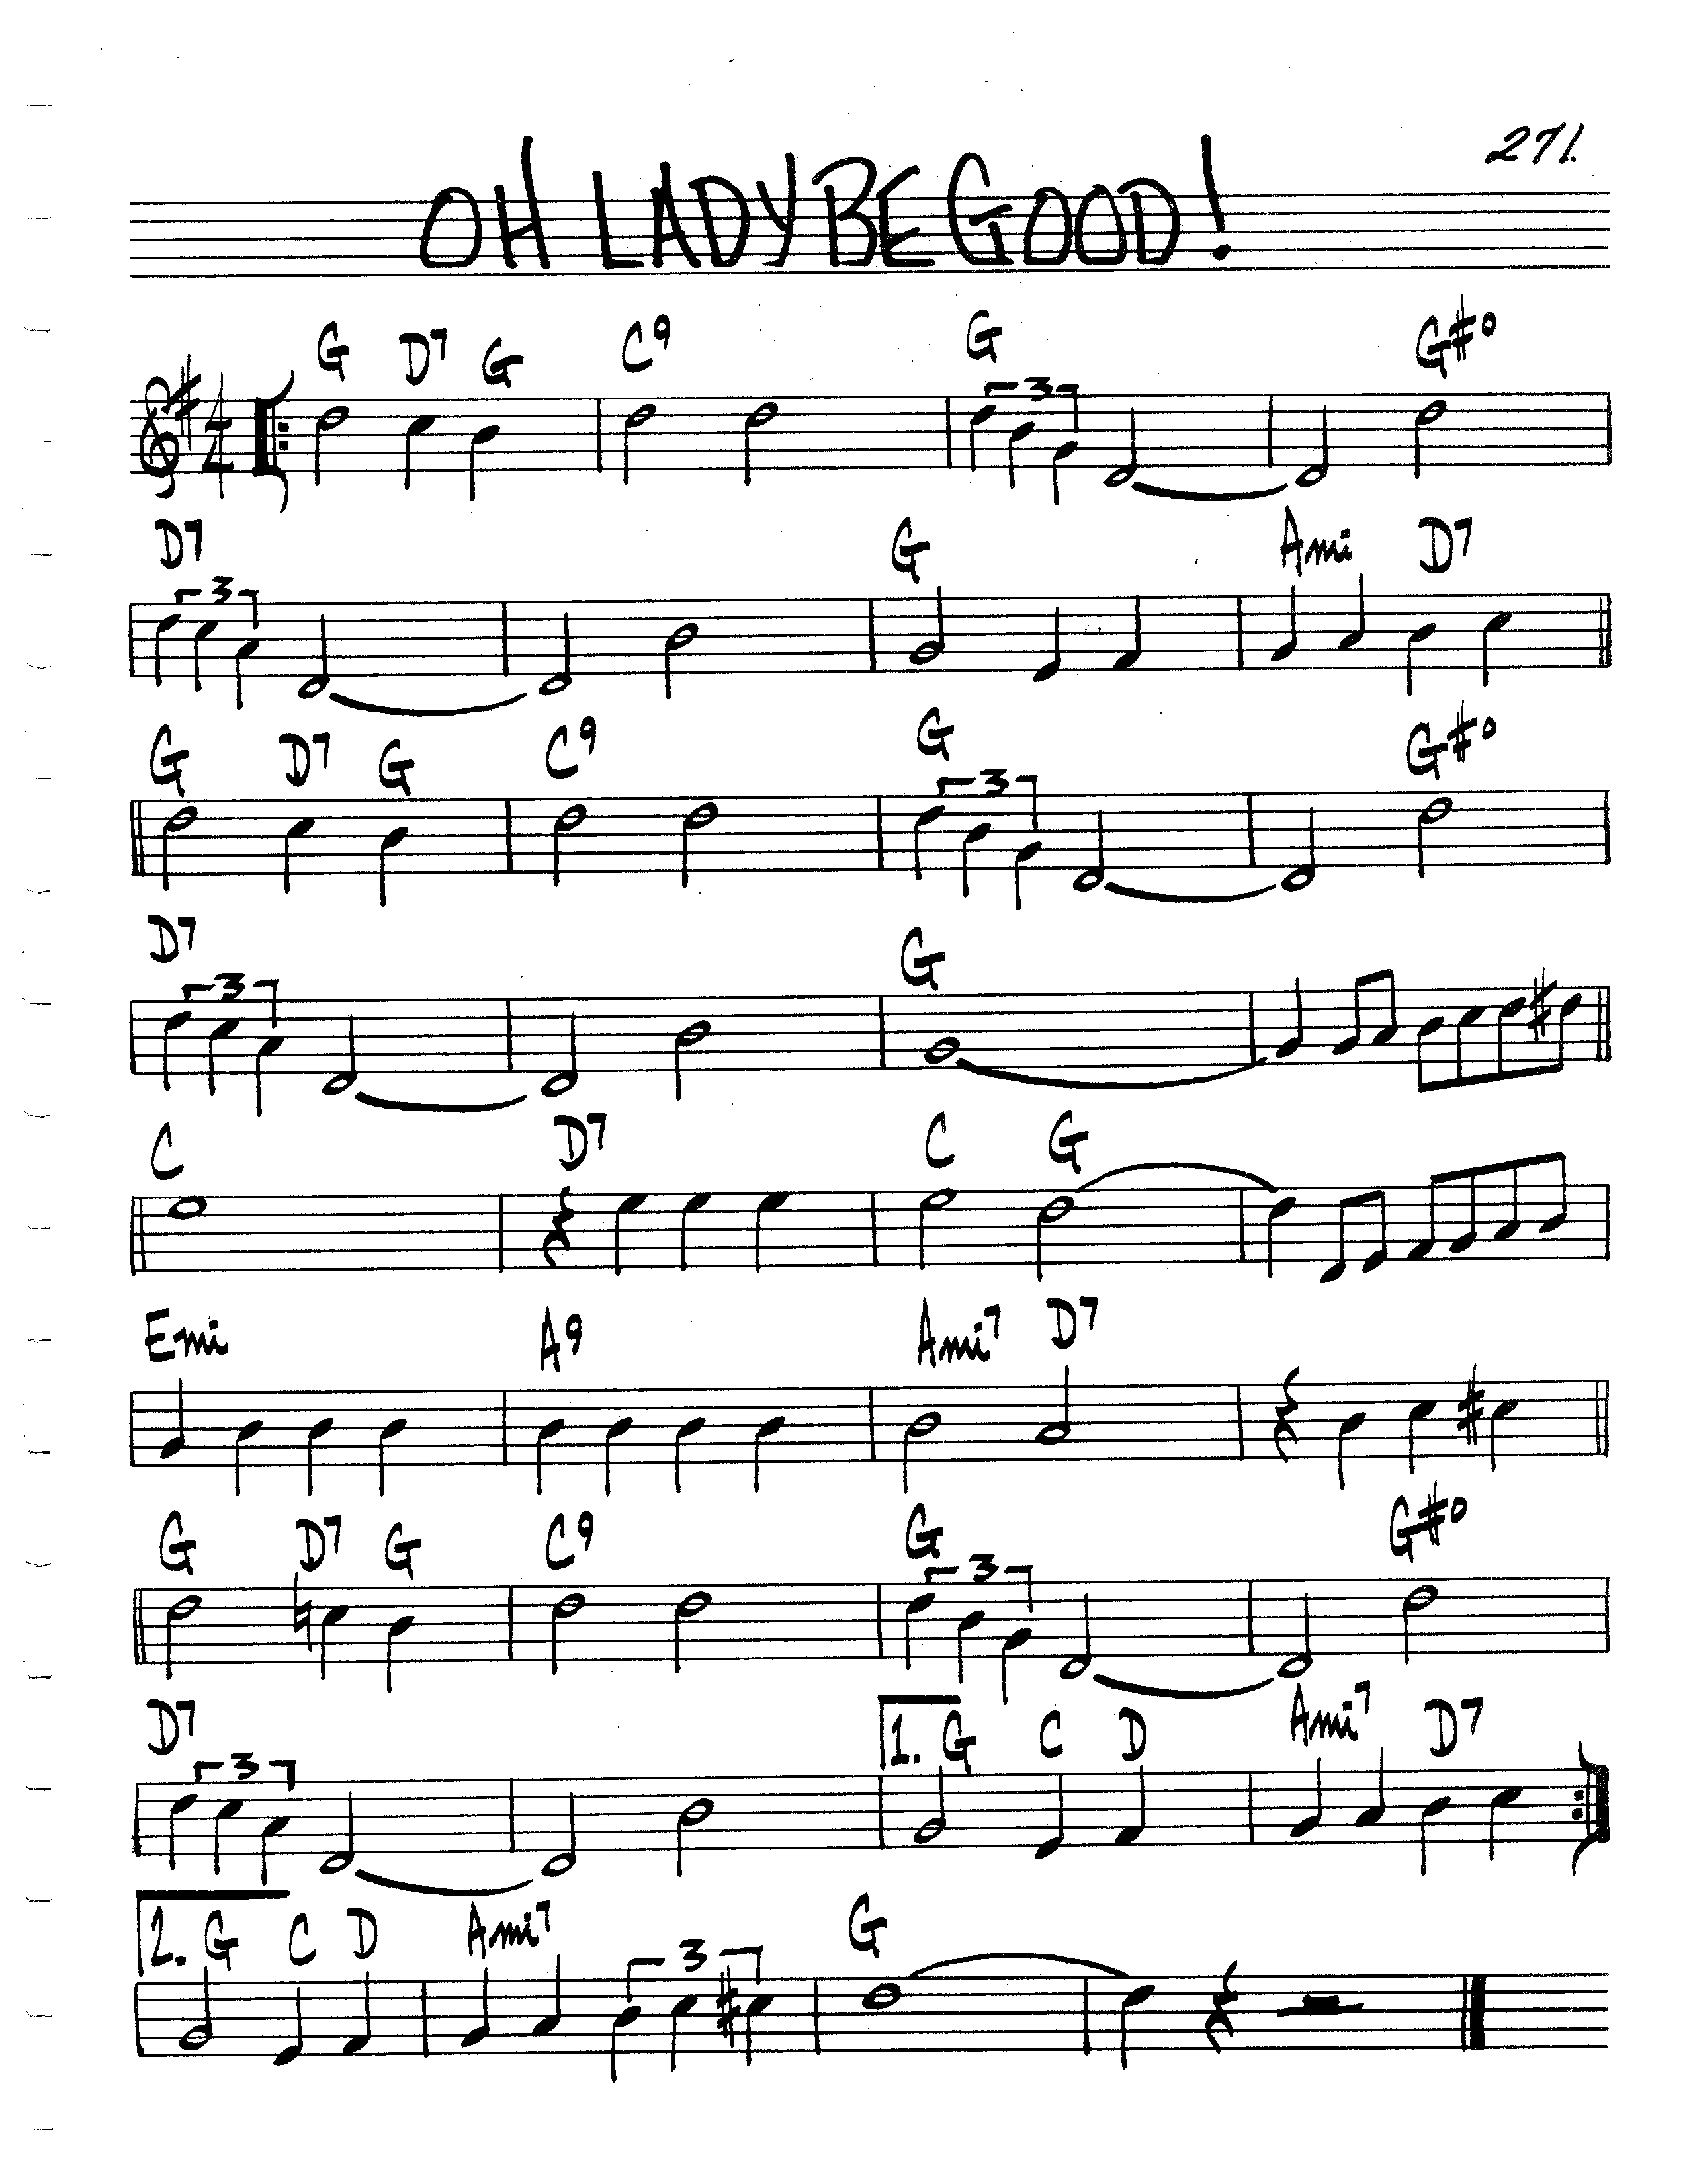 271.
OH LADY BE GOOD!
G D7 G C9 G G#o
3
4
4
D7 G Ami D7
3
G D7 G C9 G G#o
3
D7 G
3
C D7 C G
Emi A9 Ami7 D7
G D7 G C9 G G#o
3
D7 1. G C D Ami7 D7
3
2. G C D Ami7 G
3